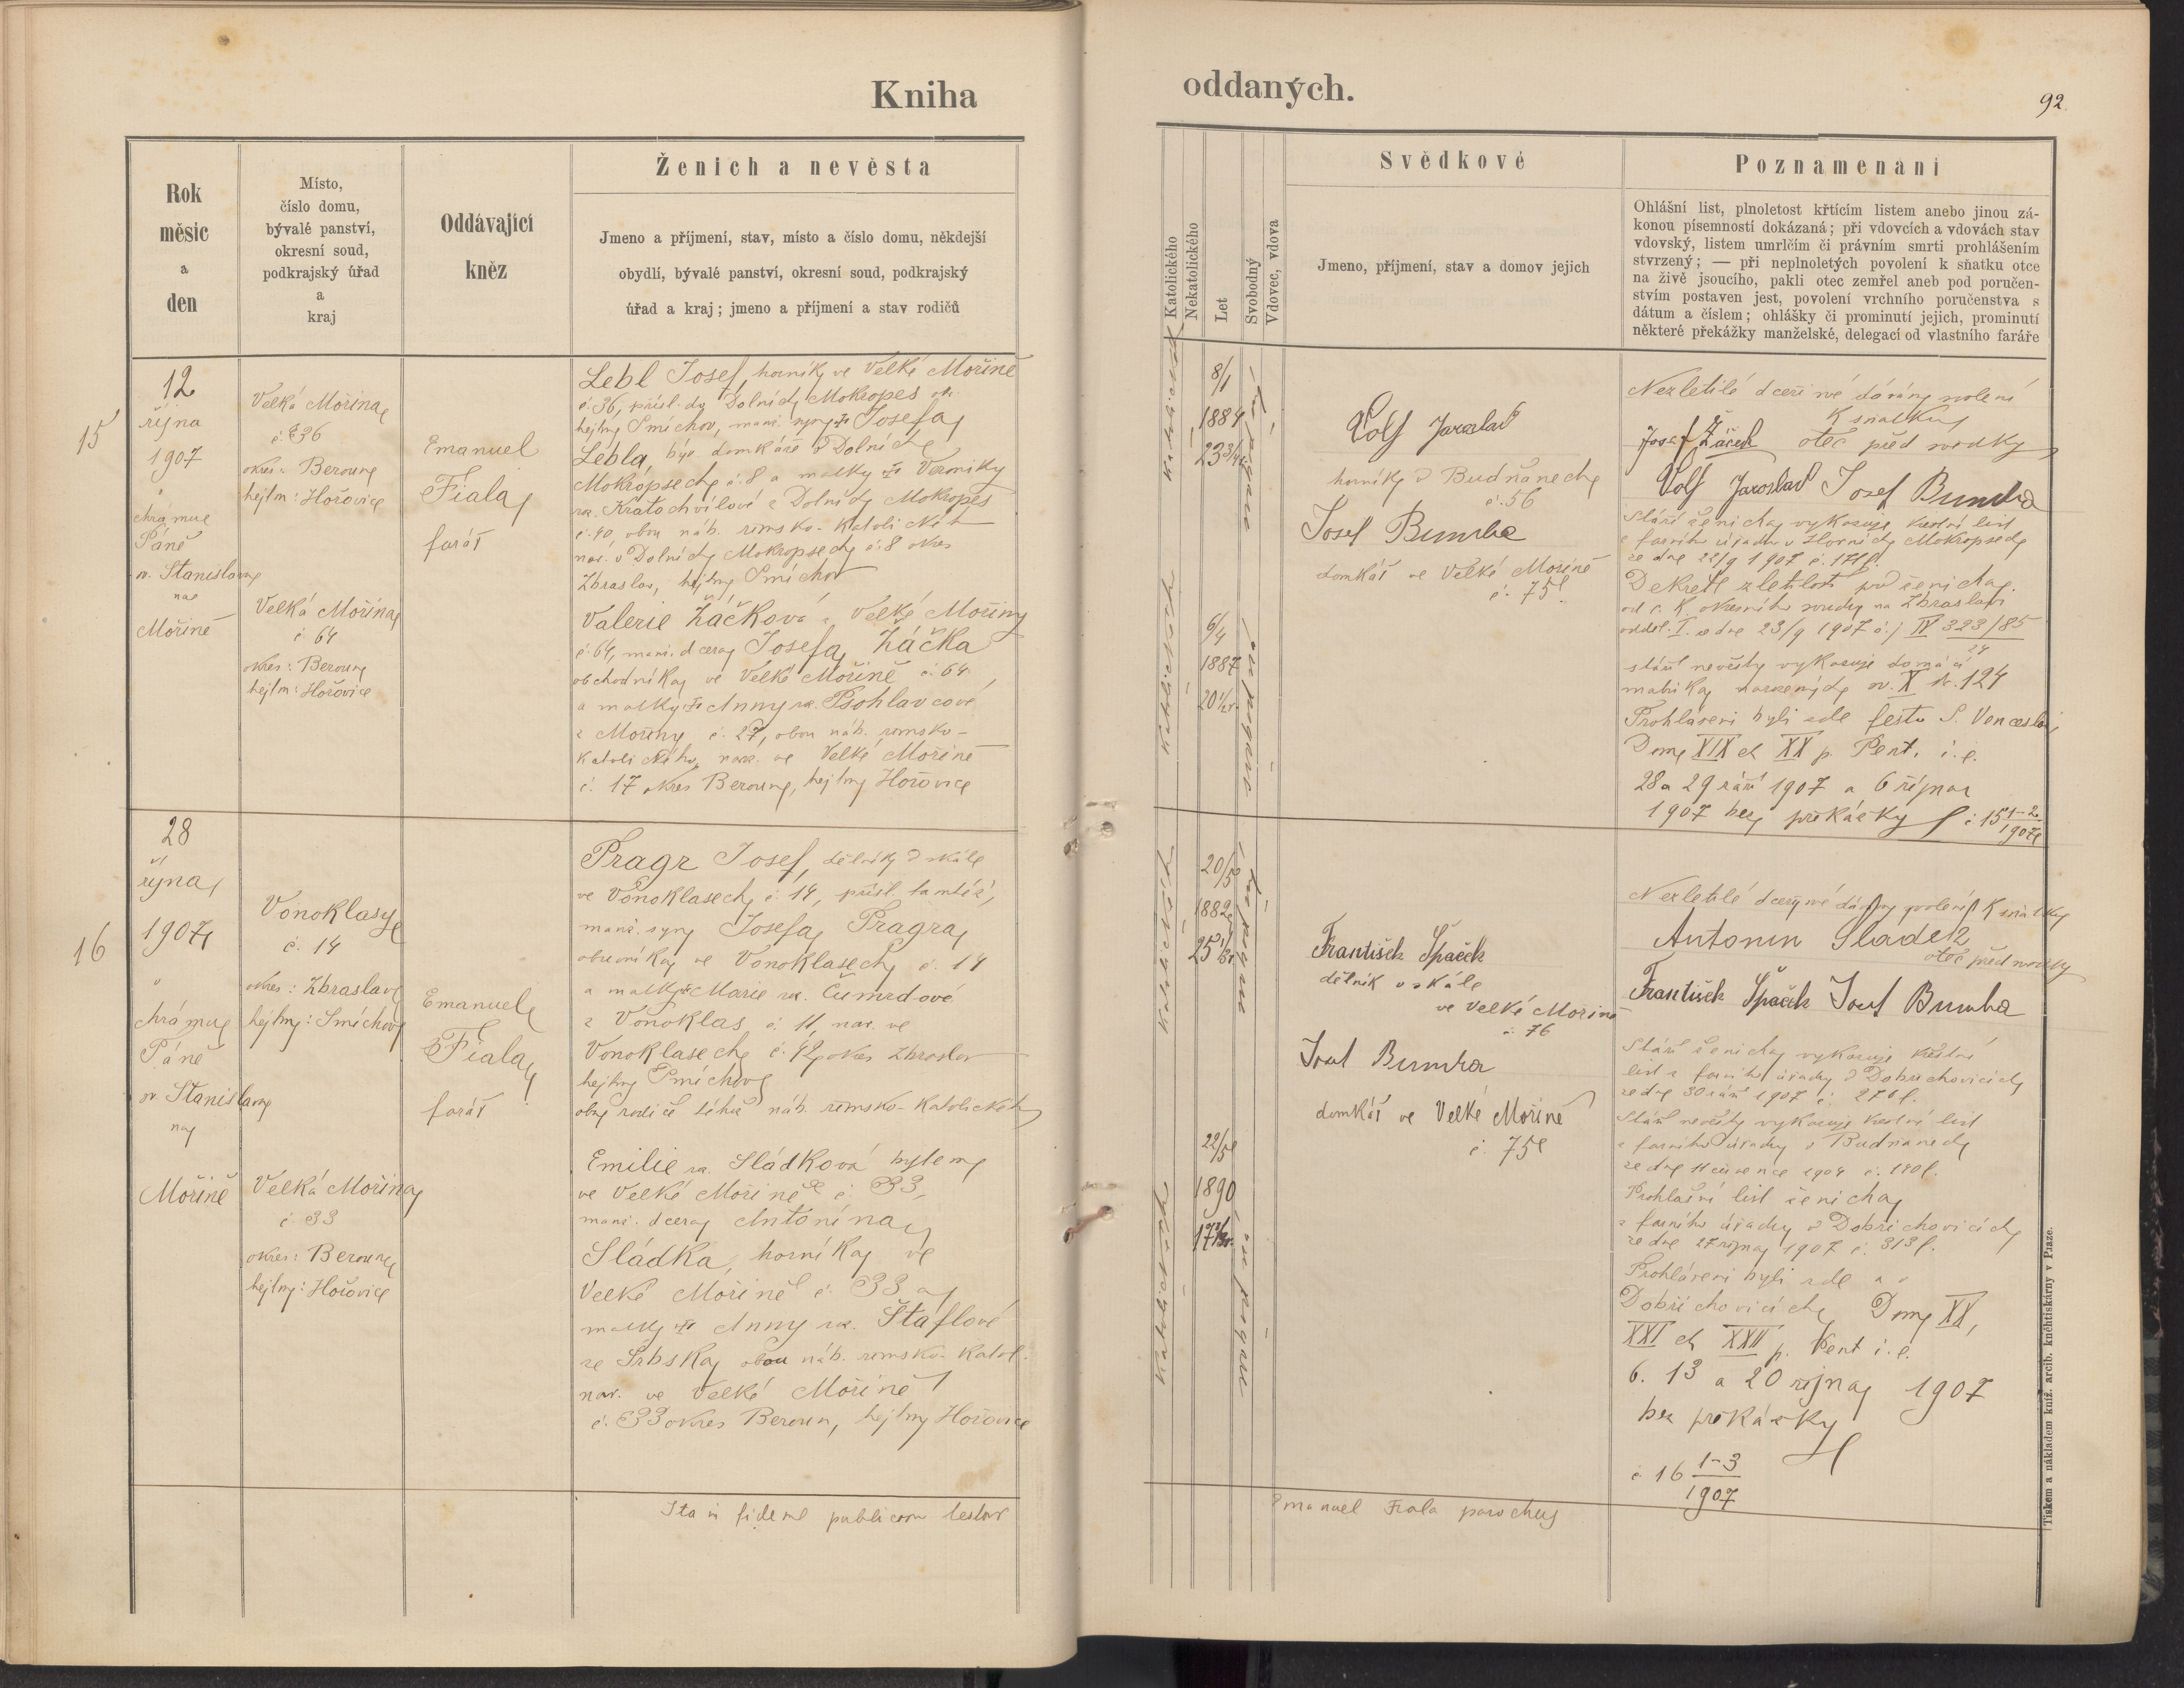 Kniha
Rok
měsic
a
den
Místo,
číslo domu,
bývalé panství,
okresní soud,
podkrajský úřad
a
kraj
Oddávající
kněz
Ženich a nevěsta
Jmeno a příjmení, stav, místo a číslo domu, někdejší
obydlí, bývalé panství, okresní soud, podkrajský
úřad a kraj; jmeno a příjmení a stav rodičů
15
12
října
1907
v
chrámu
Páně
sv. Stanislava
na
Mořině
Velká Mořina
č. 36
okres: Beroun
hejtm: Hořovice
Velká Mořina
č 64
okres: Beroun
hejtm: Hořovice
Emanuel
Fiala
farář
Lebl Josef, horník ve Velké Mořině
č. 36, přísl. do Dolních Mokropes ok.
hejtm Smíchov, manž. syn Josefa
Lebla, domkáře v Dolních
Mokropsech č. 8 a matky Veroniky
roz. Kratochvílové z Dolních Mokropes
č. 40, obou náb. římsko-katolickéh
nar. v Dolních Mokropsech č. 8 okres
Zbraslav, hejtm Smíchov
Valerie Žáčková z Velké Mořiny
č. 64, manž. dcera Josefa Žáčka
obchodníka ve Velké Mořině č. 64
a matky Anny roz. Psohlavcové
z Mořiny č. 27, obou náb. římsko-
katolického, nar. ve Velké Mořině
č. 17 okres Beroun, hejtm Hořovice
16
28
října
1907
v
chrámu
Páně
sv. Stanislava
na
Mořině
Vonoklasy
č. 14
okres: Zbraslav
hejtm: Smíchov
Velká Mořina
č 33
okres: Beroun
hejtm: Hořovice
Emanuel
Fiala
farář
Pragr Josef, dělník v skále
ve Vonoklasech č. 14, přísl. tamtéž,
manž. syn Josefa Pragra
obuvníka ve Vonoklasech č. 14
a matky Marie roz. Čumrdové
z Vonoklas č. 11, nar. ve
Vonoklasech č. 42 okres Zbraslav
hejtm Smíchov
oba rodiče téhož náb. římsko-katolickéh
Emilie roz. Sládková bytem
ve Velké Mořině č. 33,
manž. dcera Antonína
Sládka, horníka ve
Velké Mořině č. 33 a
matky Anny roz. Štaflové
ze Srbska obou náb. římsko-katol.
nar. ve Velké Mořině
č. 33 okres Beroun, hejtm Hořovice
Ita in fidem publicam testor
oddaných.
92.
Katolického
Nekatolického
Let
Svobodný
Vdovec, vdova
Svědkové
Jmeno, příjmení, stav a domov jejich
Poznamenání
Ohlášní list, plnoletost křtícím listem anebo jinou zá-
konou písemností dokázaná; při vdovcích a vdovách stav
vdovský, listem umrlčím či právním smrti prohlášením
stvrzený; — při neplnoletých povolení k sňatku otce
na živě jsoucího, pakli otec zemřel aneb pod poručen-
stvím postaven jest, povolení vrchního poručenstva s
dátum a číslem; ohlášky či prominutí jejich, prominutí
některé překážky manželské, delegací od vlastního faráře
8/1
1884
23 3/4
6/4
1887
20 1/2
Volf Jaroslav
horník v Budňanech
č. 56
Josef Bumba
domkář ve Velké Mořině
č. 75
Nezletilé dceři své dávám svolení
k sňatku
Josef Žáček otec před svědky
Volf Jaroslav Josef Bumba
Stáří ženicha vykazuje křestní list
z farního úřadu v Horních Mokropsech
ze dne 22/9 1907 č. 171f.
Dekret zletilosti pro ženicha
od c. k. okresního soudu na Zbraslavi
odděl. I. ze dne 23/9 1907 č. j IV 323/85
24
stáří nevěsty vykazuje domácí
matrika narozených sv. X fol. 124
Prohlášeni byli zde festo S. Venceslai,
Dom XIX et XX p. Pent. i.e.
28 a 29 září 1907 a 6 října
1907 bez překážky č 15 1-2
1907
20/5
1882
25
22/5
1890
17
František Špaček
dělník v skále
ve Velké Mořině
č. 76
Josef Bumba
domkář ve Velké Mořině
č. 75
Nezletilé dceři své dávám svolení k sňatku
Antonín Sládek
otec před svědky
František Špaček Josef Bumba
Stáří ženicha vykazuje křestní
list z farního úřadu v Dobřichovicích
ze dne 30 září 1907 č. 270f.
Stáří nevěsty vykazuje křestní list
z farního úřadu v Budňanech
ze dne 11 července 1904 č. 140f.
Prohlašní list ženicha
z farního úřadu v Dobřichovicích
ze dne 27 října 1907 č. 313f.
Prohlášeni byli zde a v
Dobřichovicích Dom XX,
XXI et XXII p. Pent i.e.
6. 13 a 20 října 1907
bez překážky
č 16 1-3
1907
Emanuel Fiala parochus
Tiskem a nákladem kníž. arcib. kněhtiskárny v Praze.